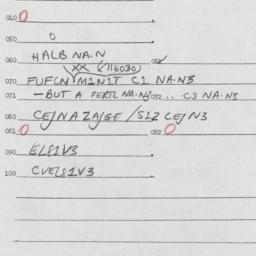 040 0
050 0
060 HALB NA.N 062
XX (116030)
070 FUFCN M1N1T C1 NA.N3
071 -BUT A FERTL NA.N3 072 .. C3 NA.N3
080 CEJNAZAJGE/512 CEJN3
081 0 082 0
090 EL81V3
100 CVEL81V3